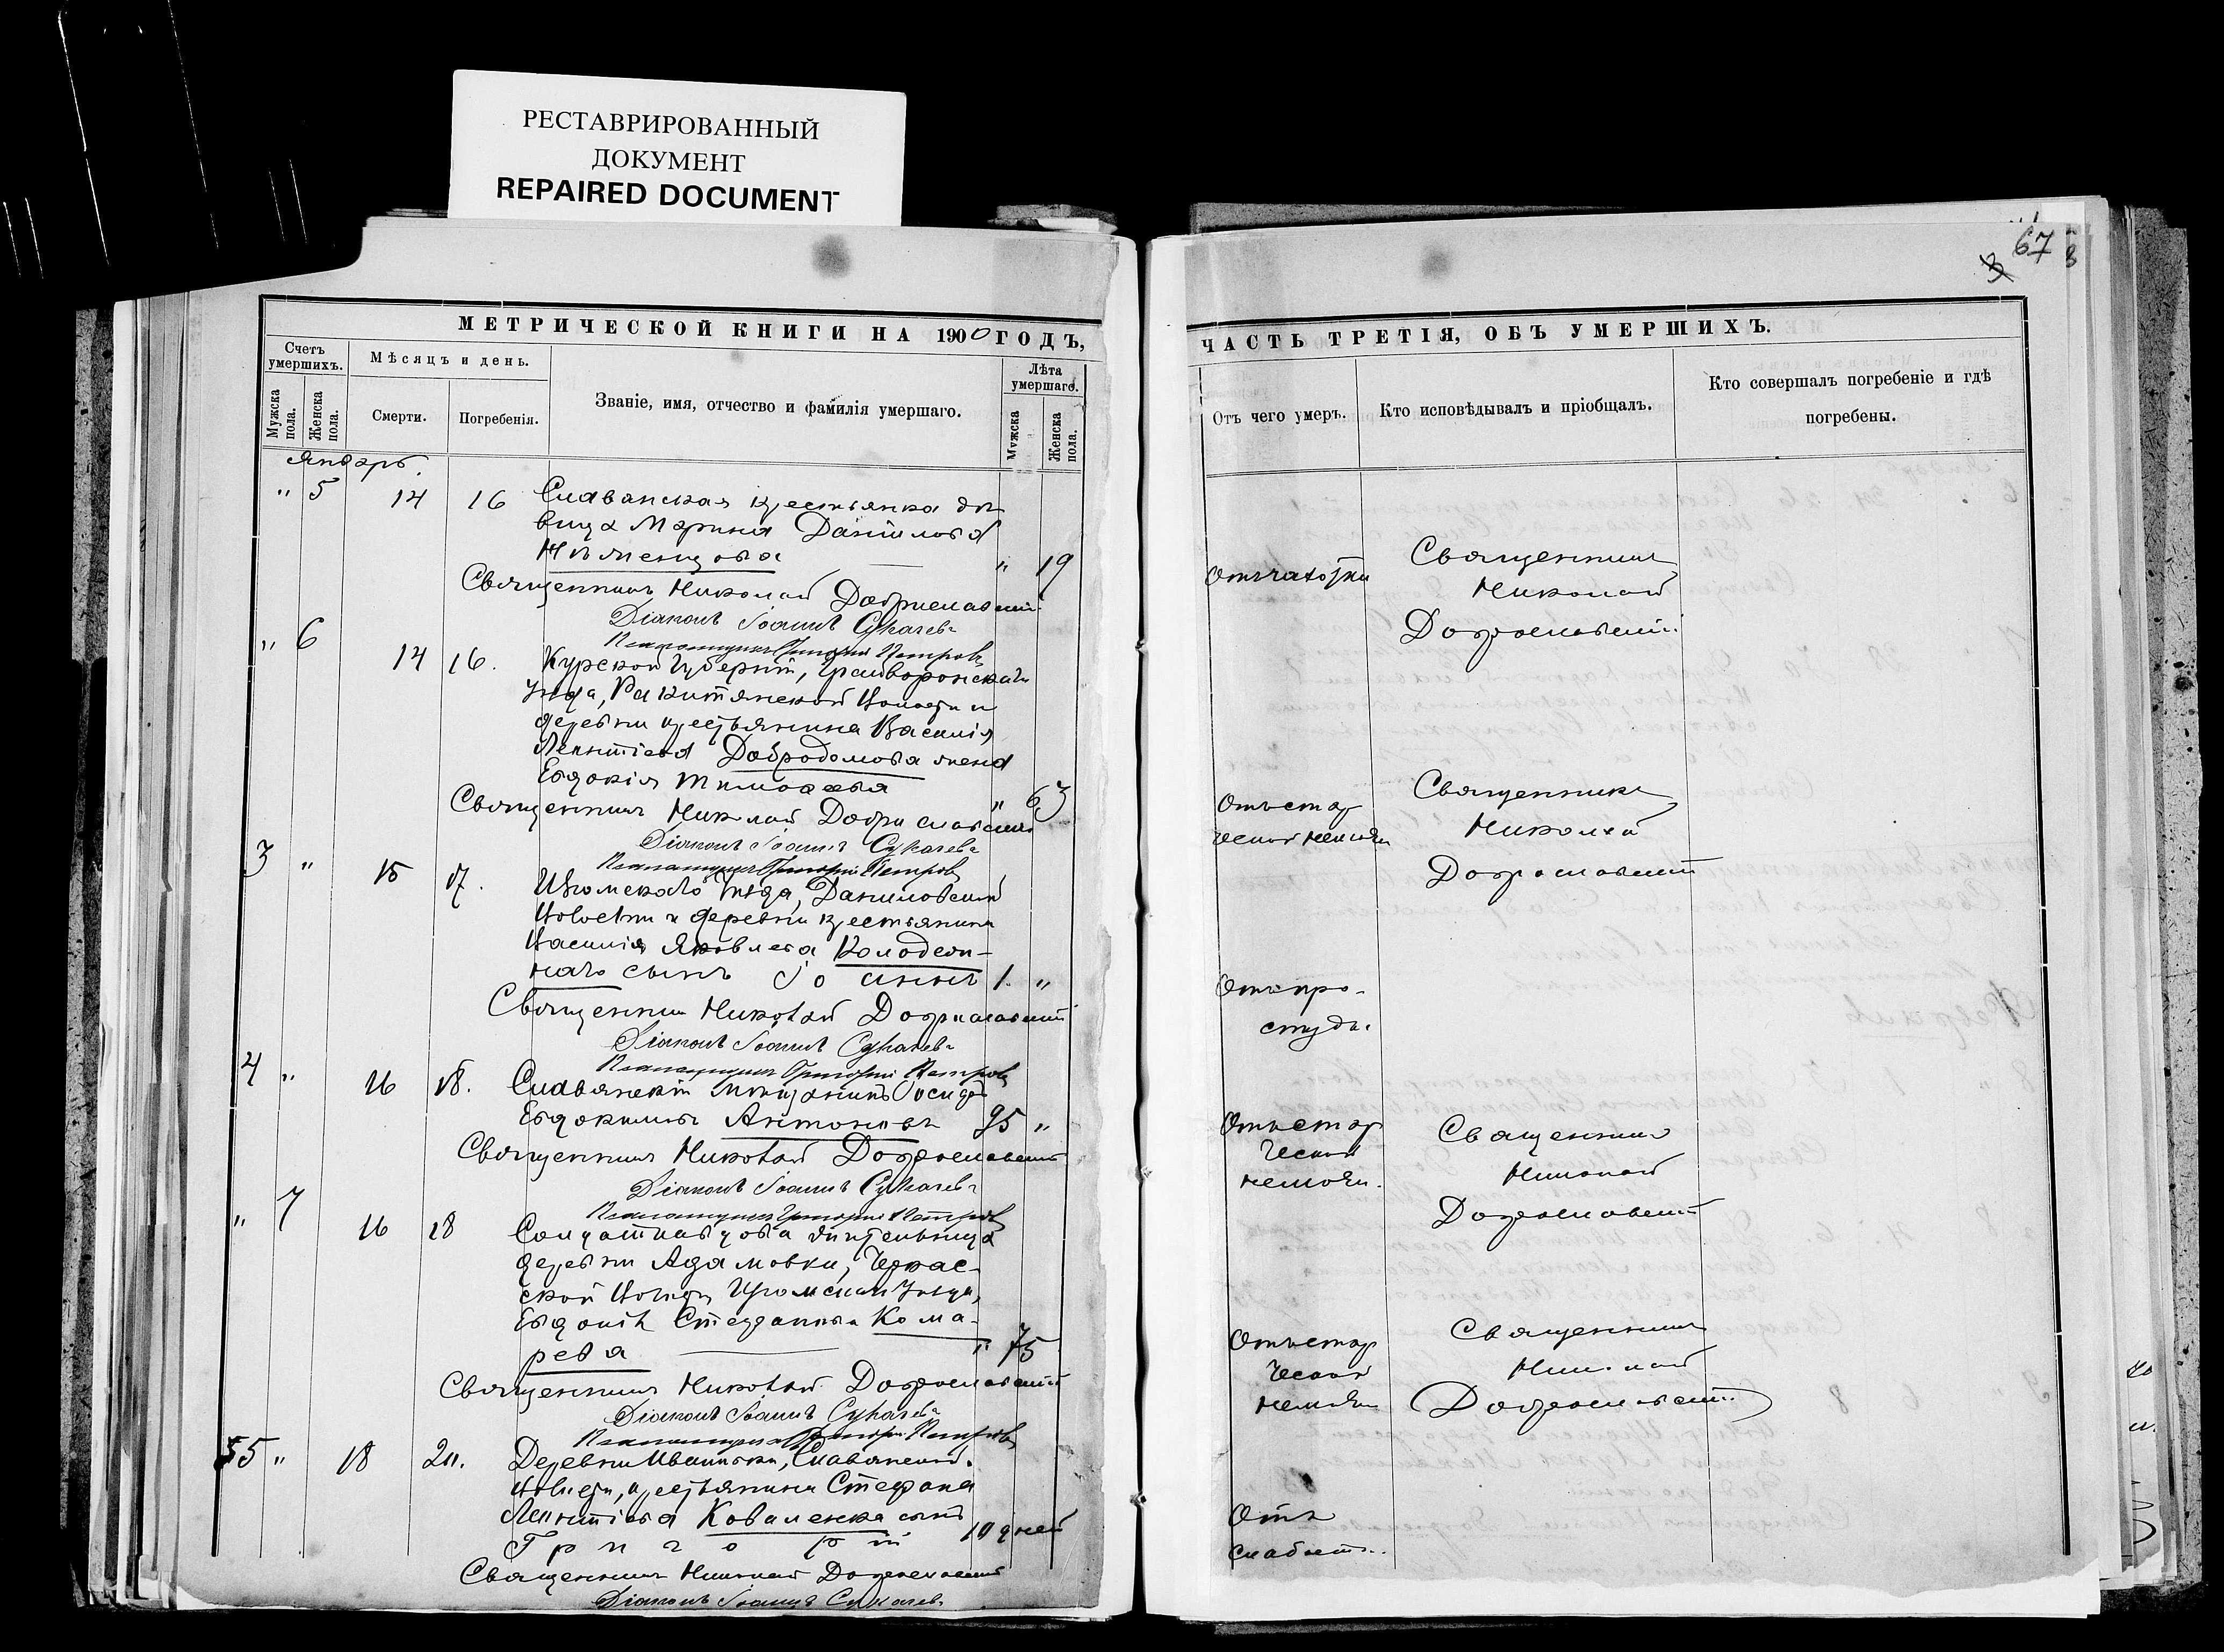 РЕСТАВРИРОВАННЫЙ
ДОКУМЕНТ
REPAIRED DOCUMENT
67
3
МЕТРИЧЕСКОЙ КНИГИ НА 1900 ГОДЪ,
Счетъ умершихъ.
Мужска пола.
Женска пола.
Мѣсяцъ и день.
Смерти.
Погребенія.
Званіе, имя, отчество и фамилія умершаго.
Лѣта умершаго.
Мужска
Женска пола.
Январь.
" 5 14 16 Славянская крестьянка дѣ-
вица Марина Даніилова
Нѣменцова " 19
Священникъ Николай Доброславскій
Діаконъ Іоаннъ Сукачевъ
Псаломщикъ Григорій Петровъ
" 6 14 16. Курской Губерніи, Грайворонскаго
уѣзда, Ракитянской Волости и
деревни крестьянина Василія
Леонтіева Добродомова жена
Евдокія Тимофеева " 63
Священникъ Николай Доброславскій
Діаконъ Іоаннъ Сукачевъ
Псаломщикъ Григорій Петровъ
3 " 15 17. Изюмскаго уѣзда, Даниловской
Волости и деревни крестьянина
Василія Яковлева Колодезн-
наго сынъ Іоаннъ 1. "
Священникъ Николай Доброславскій
Діаконъ Іоаннъ Сукачевъ
Псаломщикъ Григорій Петровъ
4 " 16 18. Славянскій мѣщанинъ
Евдокимовъ Антоновъ 95 "
Священникъ Николай Доброславскій
Діаконъ Іоаннъ Сукачевъ
Псаломщикъ Григорій Петровъ
" 7 16 18 Солдатка вдова жительница
деревни Адамовки, Черкас-
ской Волости Изюмскаго уѣзда,
Евдокія Стефанова Кома-
рева " 75
Священникъ Николай Доброславскій
Діаконъ Іоаннъ Сукачевъ
Псаломщикъ Григорій Петровъ
5 " 18 20. Деревни Ивановки, Славянской
Волости, крестьянина Стефана
Леонтіева Коваленка сынъ
Григорій 10 дней
Священникъ Николай Доброславскій
Діаконъ Іоаннъ Сукачевъ
ЧАСТЬ ТРЕТІЯ, ОБЪ УМЕРШИХЪ.
Отъ чего умеръ.
Кто исповѣдывалъ и пріобщалъ.
Кто совершалъ погребеніе и гдѣ
погребены.
Отъ чахотки
Священникъ
Николай
Доброславскій
Отъ стар
ческой немощи
Священникъ
Николай
Доброславскій
Отъ про-
студы.
Отъ стар
ческой
немощи.
Священникъ
Николай
Доброславскій
Отъ стар
ческой
немощи
Священникъ
Николай
Доброславскій
Отъ
слабости.